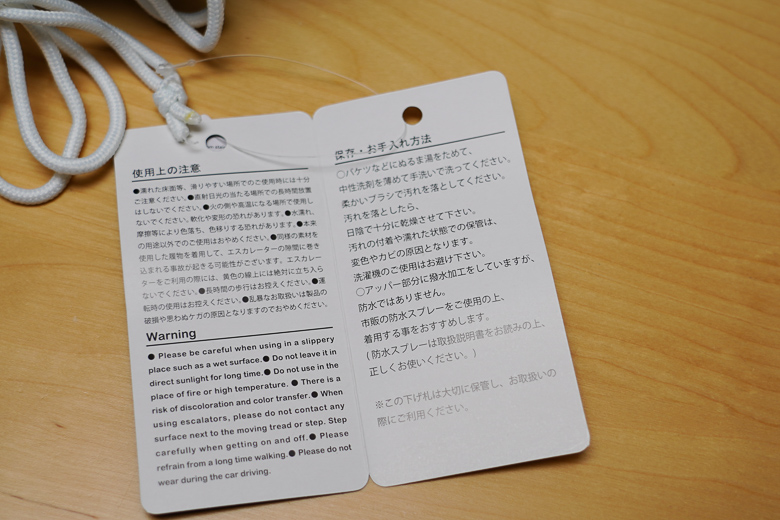 使用上の注意
●濡れた床面等、滑りやすい場所でのご使用時には十分
ご注意ください。●直射日光の当たる場所での長時間放置
はしないでください。●火の側や高温になる場所で使用し
ないでください。軟化や変形の恐れがあります。●水濡れ、
摩擦等により色落ち、色移りする恐れがあります。●本来
の用途以外でのご使用はおやめください。●同様の素材を
使用した履物を着用して、エスカレーターの隙間に巻き
込まれる事故が起きる可能性がございます。エスカレー
ターをご利用の際には、黄色の線上には絶対に立ち入ら
ないでください。●長時間の歩行はお控えください。●運
転時の使用はお控えください。●乱暴なお取扱いは製品の
破損や思わぬケガの原因となりますのでおやめください。
Warning
● Please be careful when using in a slippery
place such as a wet surface.● Do not leave it in
direct sunlight for long time.● Do not use in the
place of fire or high temperature. ● There is a
risk of discoloration and color transfer.● When
using escalators, please do not contact any
surface next to the moving tread or step. Step
carefully when getting on and off.● Please
refrain from a long time walking.● Please do not
wear during the car driving.
保存・お手入れ方法
○バケツなどにぬるま湯をためて、
中性洗剤を薄めて手洗いで洗ってください。
柔かいブラシで汚れを落としてください。
汚れを落としたら、
日陰で十分に乾燥させて下さい。
汚れの付着や濡れた状態での保管は、
変色やカビの原因となります。
洗濯機のご使用はお避け下さい。
○アッパー部分に撥水加工をしていますが、
防水ではありません。
市販の防水スプレーをご使用の上、
着用する事をおすすめします。
(防水スプレーは取扱説明書をお読みの上、
正しくお使いください。)
※この下げ札は大切に保管し、お取扱いの
際にご利用ください。